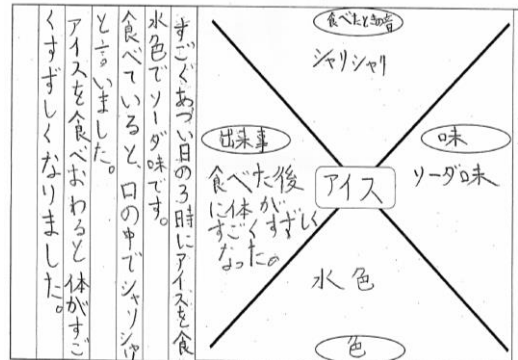 食べたときの音
シャリシャリ
味
ソーダ味
アイス
出来事
食べた後
に体が
すごくすずしく
なったの
水色
色
すごくあつい日の3時にアイスを食
水色でソーダ味です。
食べていると、口の中でシャリシャ
と言いました。
アイスを食べおわると体がすご
くすずしくなりました。